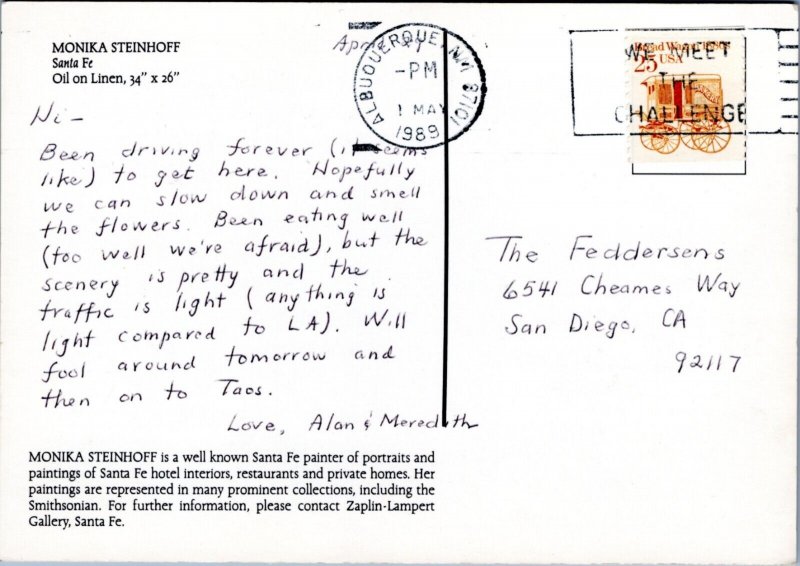 MONIKA STEINHOFF
Santa Fe
Oil on Linen, 34" x 26"
April
ALBUQUERQUE, NM 87101
-PM
1 MAY
1989
Bread Wagon 1880s
25 USA
WE MEET
THE
CHALLENGE
Hi-
Been driving forever (it seems
like) to get here. Hopefully
we can slow down and smell
the flowers. Been eating well
(too well we're afraid), but the
scenery is pretty and the
traffic is light (anything is
light compared to LA). Will
fool around tomorrow and
then on to Taos.
Love, Alan & Meredith
The Feddersens
6541 Cheames Way
San Diego, CA
92117
MONIKA STEINHOFF is a well known Santa Fe painter of portraits and
paintings of Santa Fe hotel interiors, restaurants and private homes. Her
paintings are represented in many prominent collections, including the
Smithsonian. For further information, please contact Zaplin-Lampert
Gallery, Santa Fe.